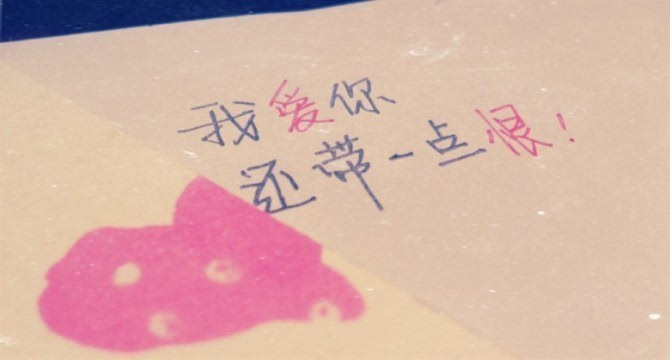 我爱你
还带一点恨！